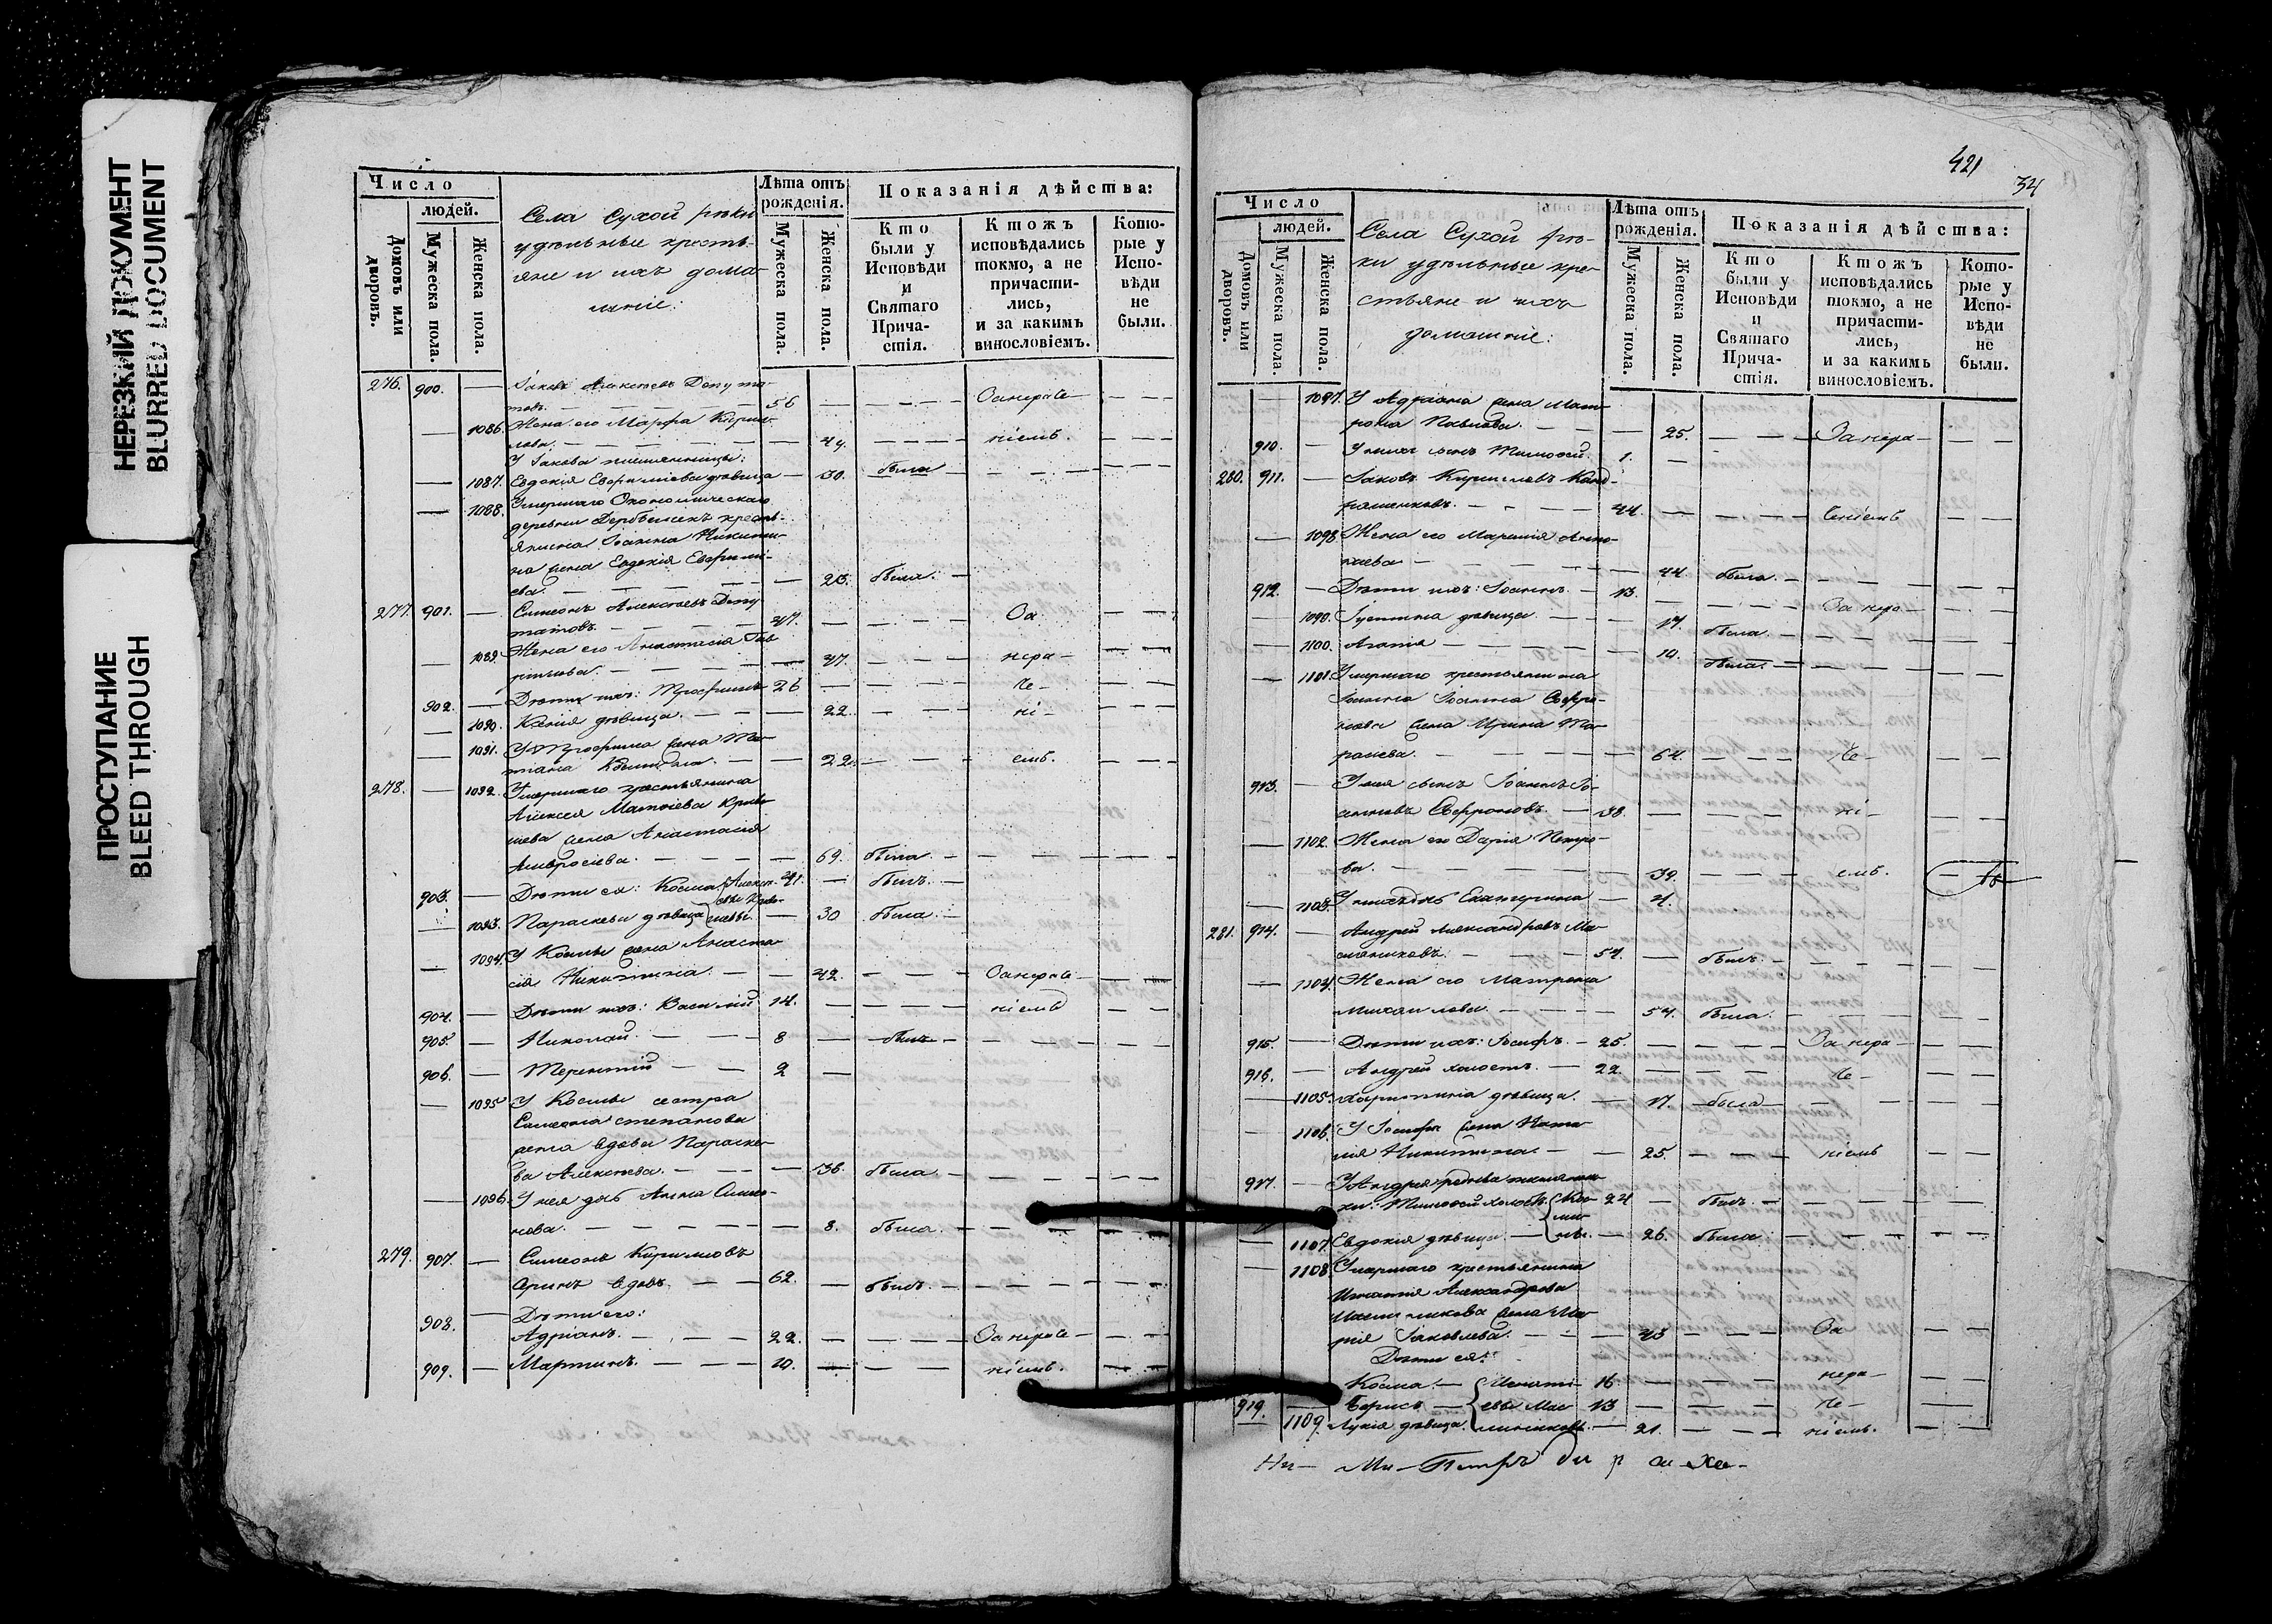 НЕРЕЗКИЙ ДОКУМЕНТ
BLURRED DOCUMENT
ПРОСТУПАНИЕ
BLEED THROUGH
Число
людей.
Домовъ или дворовъ.
Мужеска пола.
Женска пола.
Села Сухой рѣки
удѣльные кресть-
яне и ихъ дома-
шніе:
Лѣта отъ рожденія.
Мужеска пола.
Женска пола.
Показанія дѣйства:
Кто были у Исповѣди и Святаго Прича-стія.
Ктожъ исповѣдались токмо, а не причасти-лись, и за какимъ винословіемъ.
Кото-рые у Испо-вѣди не были.
276. 900. — Іаковъ Алексѣевъ Депута-
товъ. — 56 — Занераче
— 1086. Жена его Марфа Кирил-
лова. — 44. — ніемъ.
У Іакова племянницы:
— 1087. Евдокія дѣвица — 30. была
— 1088. Умершаго Экономическаго
деревни крестья-
янина Іоанна Никити-
на жена Евдокія
ева. — 23. была.
277. 901. — Симеонъ Алексѣевъ Депу
татовъ. — 47. — За
— 1089. Жена его Анастасія Гав
рилова. — 47. — нера-
902. — Дѣти ихъ: Трофимъ 26 — че-
— 1090. Ксенія дѣвица. — 22. — ні-
— 1091. У Трофима жена Та-
тіана — 22. — емъ.
278. — 1092. Умершаго крестьянина
Алексея Матвіева
жена Анастасія
Амвросіева. — 69. была.
903. — Дѣти ея: Косма Алексѣ- 41. — былъ.
— 1093. Параскева дѣвица — 30 была.
— 1094. У Космы жена Анаста-
сія Никитина. — 42. — Занераче
904. — Дѣти ихъ: Василій 14. — ніемъ
905. — Николай. — 8 — былъ
906. — Терентій — 2 —
— 1095 У Космы сестра
Симеона Степанова
жена вдова Параске-
ва Алексѣева. — 36. была.
— 1096. У нея дчь Анна Симео-
нова. — 8. была.
279. 907. — Симеонъ Кириловъ
вдовъ. — 62. — былъ.
908. — Дѣти его:
Адріанъ. — 22. — Занераче
909. — Мартинъ. — 20. — ніемъ.
421
34
Число
людей.
Домовъ или дворовъ.
Мужеска пола.
Женска пола.
Села Сухой рѣ-
ки удѣльные кре-
стьяне и ихъ
домашніе:
Лѣта отъ рожденія.
Мужеска пола.
Женска пола.
Показанія дѣйства:
Кто были у Исповѣди и Святаго Прича-стія.
Ктожъ исповѣдались токмо, а не причасти-лись, и за какимъ винословіемъ.
Кото-рые у Испо-вѣди не были.
— 1097. У Адріана жена Мат-
рона Павлова. — 25. — Занера-
910. — У нихъ сынъ Тимофей. 1. —
280. 911. — Іаковъ Кирилловъ Канд-
рашенковъ. — 44. — ченіемъ
— 1098 Жена его
— 44. была.
912. — Дѣти ихъ: Іоаннъ. — 13. — За нера-
— 1099. Іустина дѣвица. — 17. была.
— 1100. Агафія — 10. была.
— 1101. Умершаго крестьянина
Іоанна Іоанна Софро-
нова жена Ирина Та-
расіева. — 64. — че-
913. — У нея сынъ Іоаннъ Іо-
анновъ Софроновъ. — 38. — ні-
— 1102. Жена его Дарія Петро-
ва. — 39. — емъ.
— 1103. У нихъ дчь Екатерина — 4.
281. 914. — Андрей Александровъ Ма-
сленниковъ. — 54. — былъ.
— 1104. Жена его Матрона
Михаилова. — 54. была.
915. — Дѣти ихъ: Іосифъ. — 25. — За нера-
916. — Андрей холостъ. — 22. — че-
— 1105. Харитина дѣвица. — 17. была
— 1106. У Іосифа жена Ната-
лія Никитина. — 25. — ніемъ
917. — У Андрея племянни-
ки: Тимофей холостъ 24 — былъ.
— 1107 Евдокія дѣвица. — 26. была
— 1108 Умершаго крестьянина
Игнатія Александрова
Масленникова жена Ма-
рія Іаковлева. — 45 — За
Дѣти ея:
Косма. — Игнати- 16 — нера-
919. — Борисъ — евы Мас 13 — че-
1109. Лукія дѣвица. ленниковы. — 21. — ніемъ.